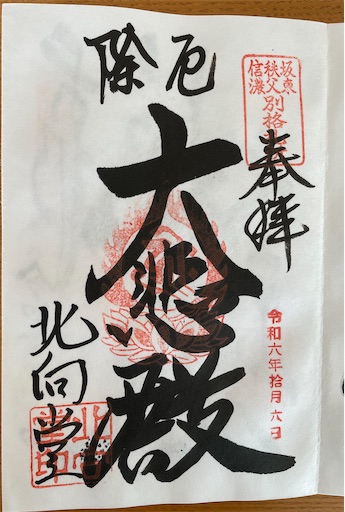 坂東
秩父
信濃
別格
奉拝
令和六年拾月六日
厄除
大悲殿
北向堂
北向
堂印